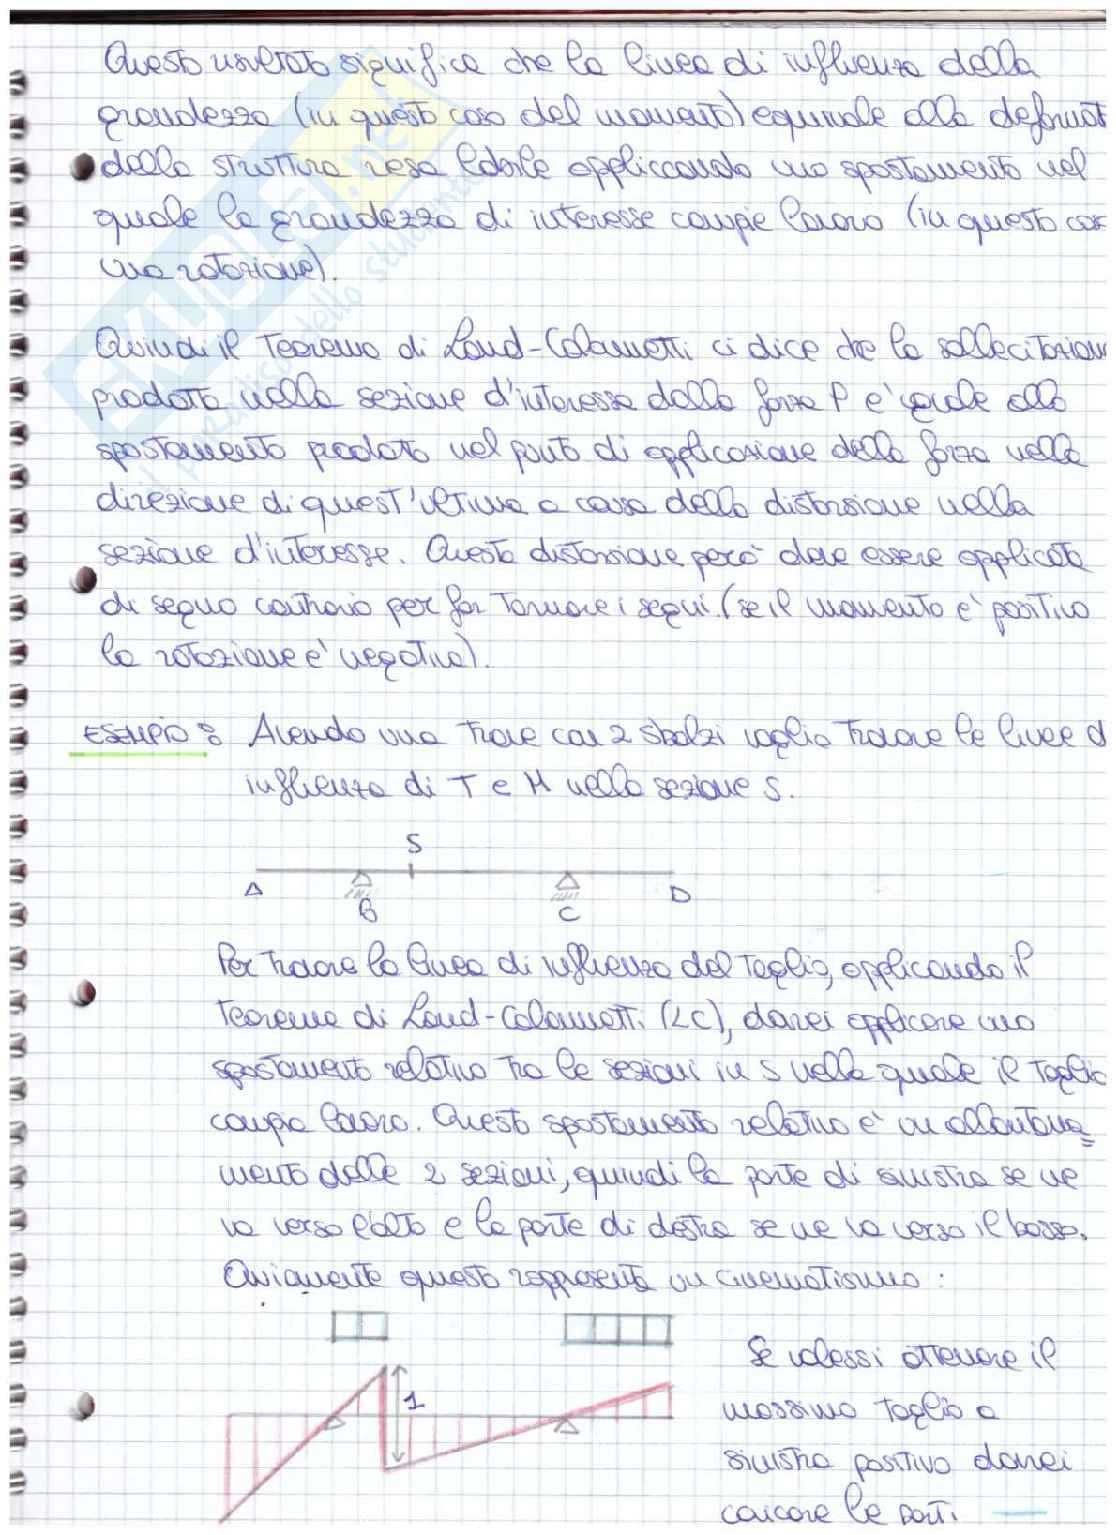 Questo risultato significa che la linea di influenza della
grandezza (in questo caso del momento) equivale alla deformat
della struttura resa labile applicando uno spostamento nel
quale la grandezza di interesse compie lavoro (in questo cas
una rotazione).
Quindi il Teorema di Land-Colonnetti ci dice che la sollecitazion
prodotta nella sezione d'interesse dalla forza P e' uguale allo
spostamento prodotto nel punto di applicazione della forza nella
direzione di quest'ultima a causa della distorsione nella
sezione d'interesse. Questa distorsione pero' deve essere applicata
di segno contrario per far tornare i segni. (se il momento e' positivo
la rotazione e' negativa).
ESEMPIO: Avendo una trave con 2 sbalzi voglio trovare le linee d
influenza di T e M nella sezione S.
S
A B C D
Per trovare la linea di influenza del Taglio, applicando il
teorema di Land-Colonnetti (LC), dovrei applicare uno
spostamento relativo tra le sezioni in S nella quale il Taglio
compia lavoro. Questo spostamento relativo e' un allontana=
mento delle 2 sezioni, quindi la parte di sinistra se ne
va verso l'alto e la parte di destra se ne va verso il basso.
Ovviamente questo rappresenta un cinematismo :
1
Se volessi ottenere il
massimo taglio a
sinistra positivo dovrei
caricare le parti
SKUOLA.net
il paradiso dello studente